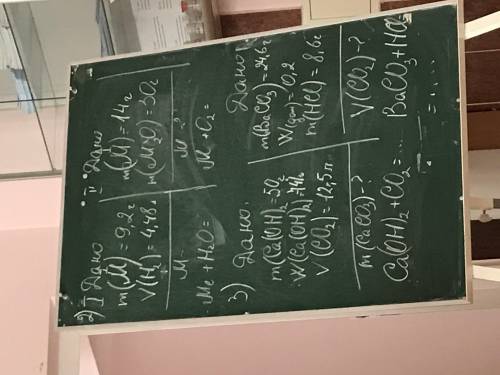 2) I Дано
m(M) = 9,2г
V(H₂) = 4,48л
M
Me + H₂O =
II Дано
m(M) = 14г
m(M₂O) = 30г
M - ?
M + O₂ =
3) Дано:
m(Ca(OH)₂) = 50г
W(Ca(OH)₂) = 74%
V(CO₂) = 12,5л
m(CaCO₃) - ?
Ca(OH)₂ + CO₂ = ...
Дано
m(BaCO₃) = 24,6г
W(прим) = 0,2
m(HCl) = 8,6г
V(CO₂) - ?
BaCO₃ + HCl
= ...